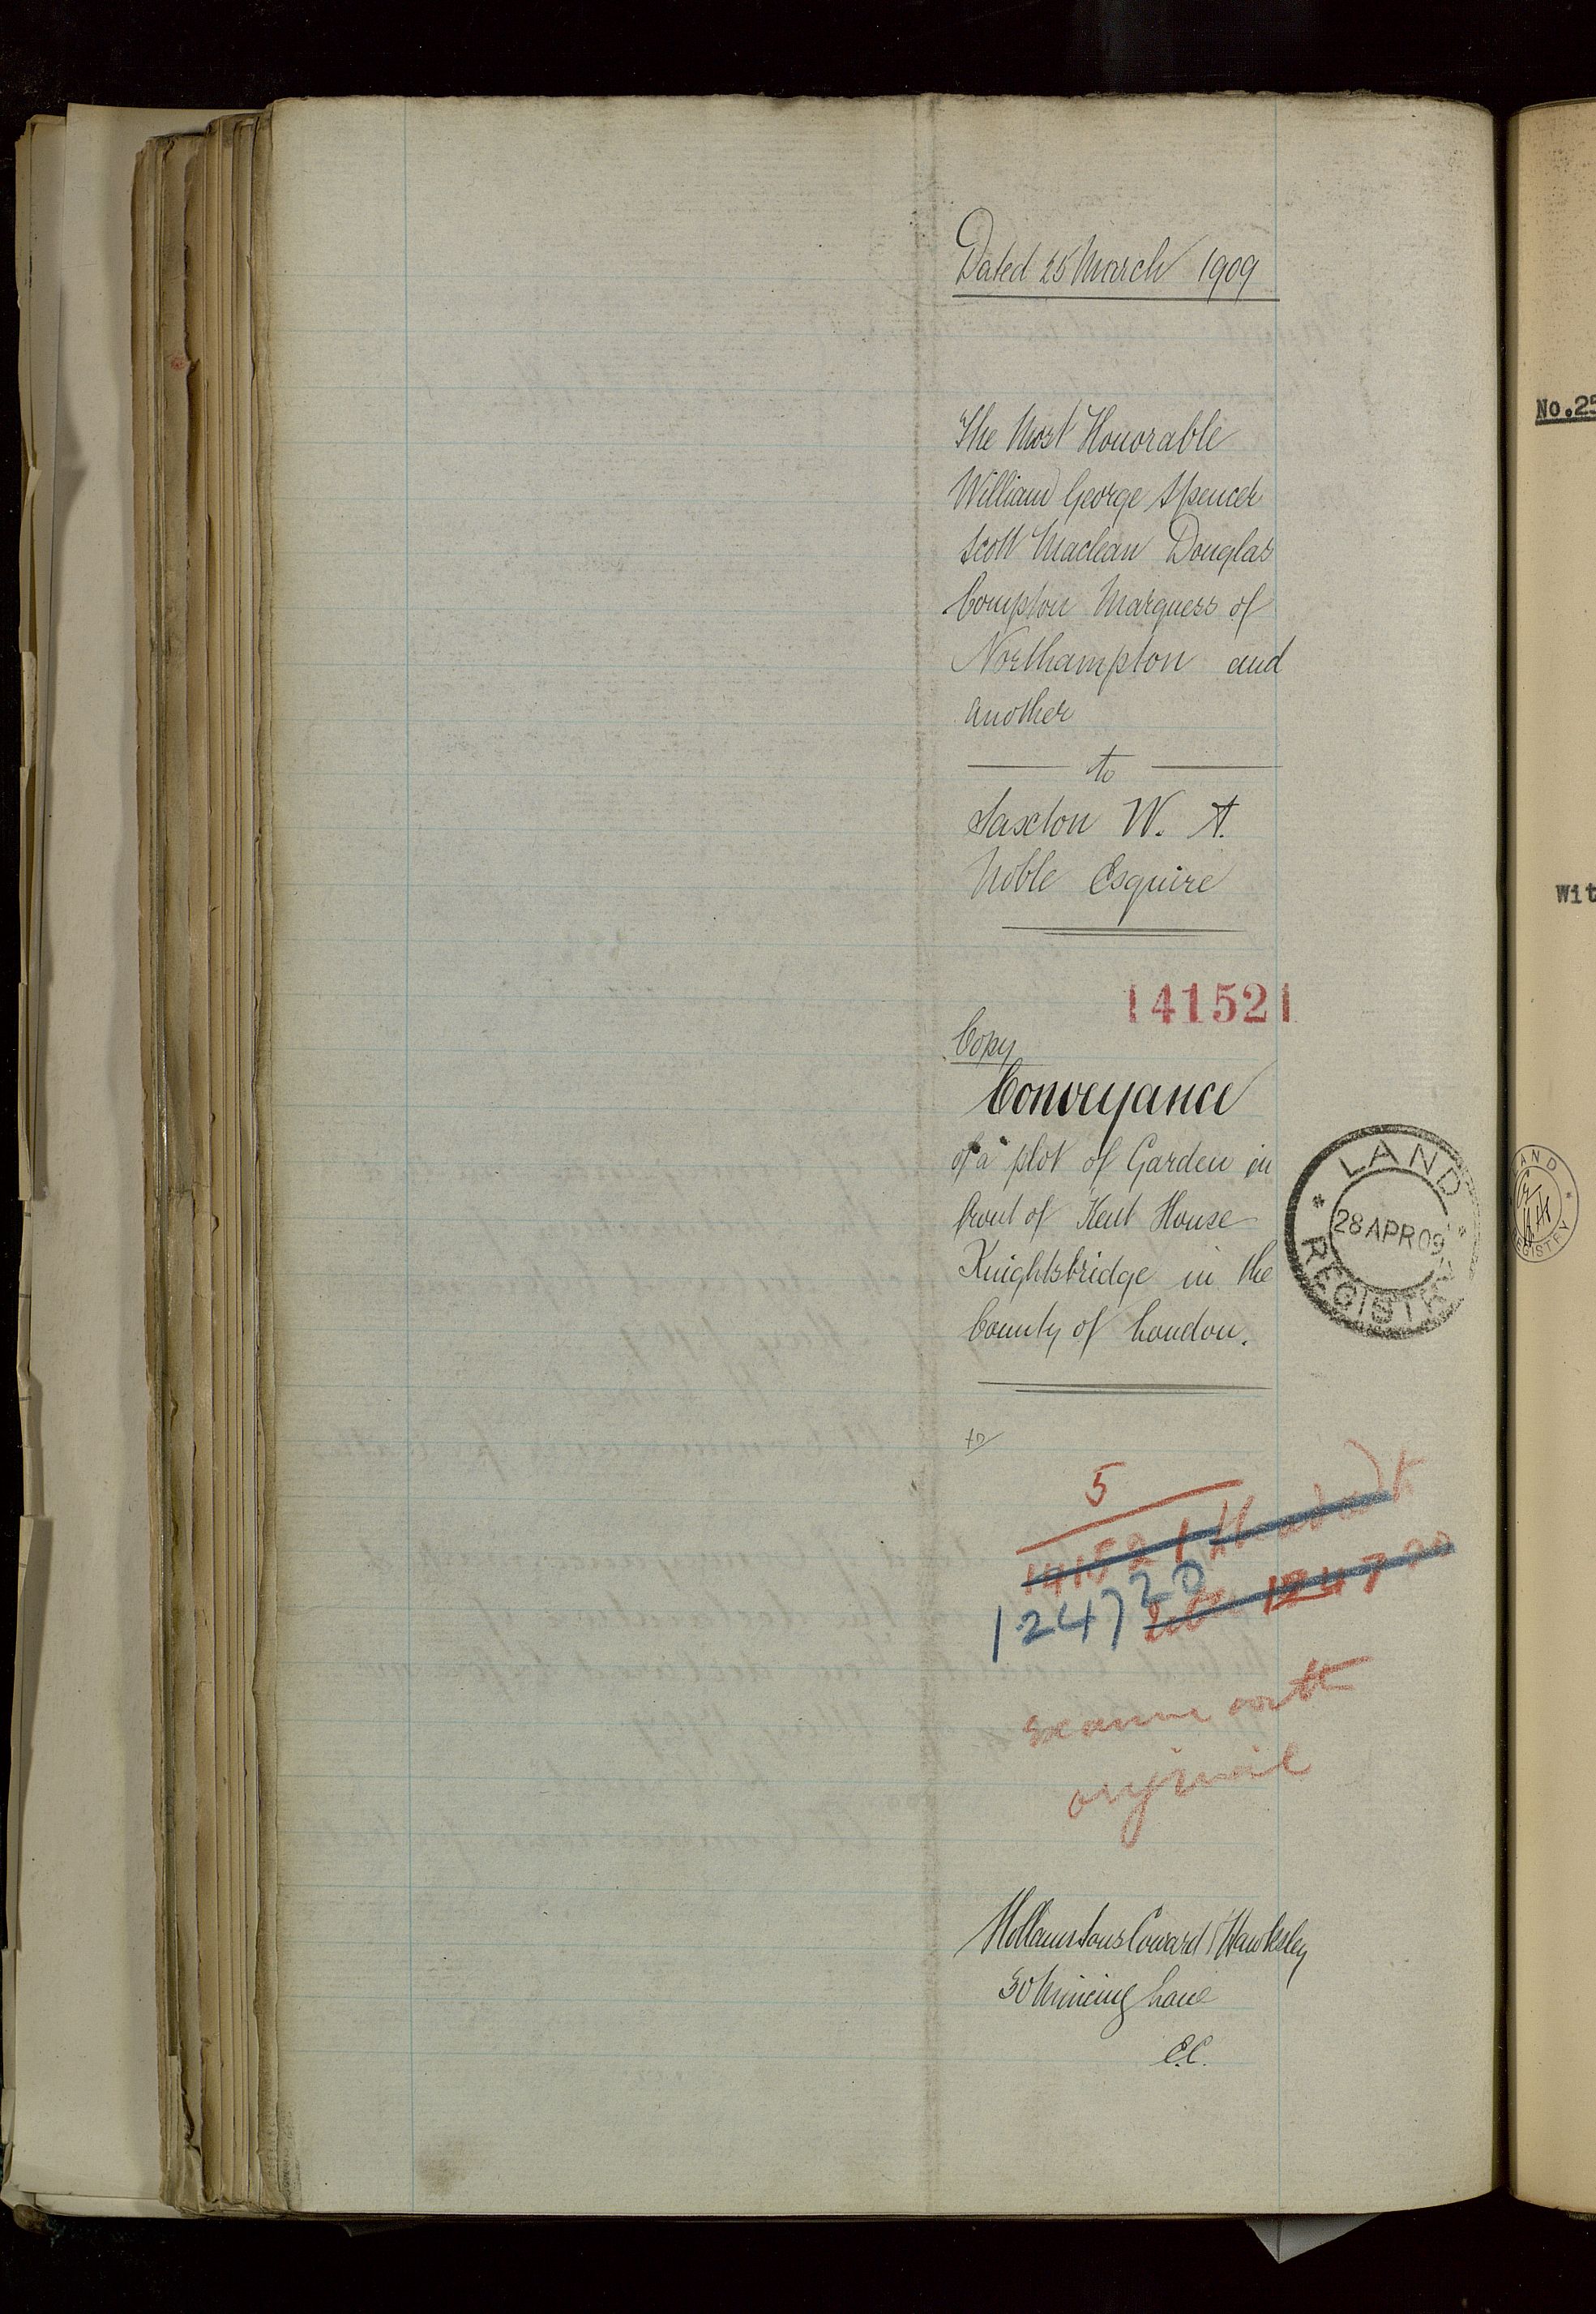 Dated 25 March 1909
The Most Honorable
William George Spencer
Scott Maclean Douglas
Compton Marquess of
Northampton and
another
to
Saxton W. A.
Noble Esquire
141521
Copy
Conveyance
of a plot of Garden in
front of Kent House
Knightsbridge in the
County of London.
LAND
28 APR 09
REGISTRY
5
141521
124720
124720
examine with
original
Hollams Sons Coward & Hawksley
30 Mincing Lane
E.C.
No.25
Wit